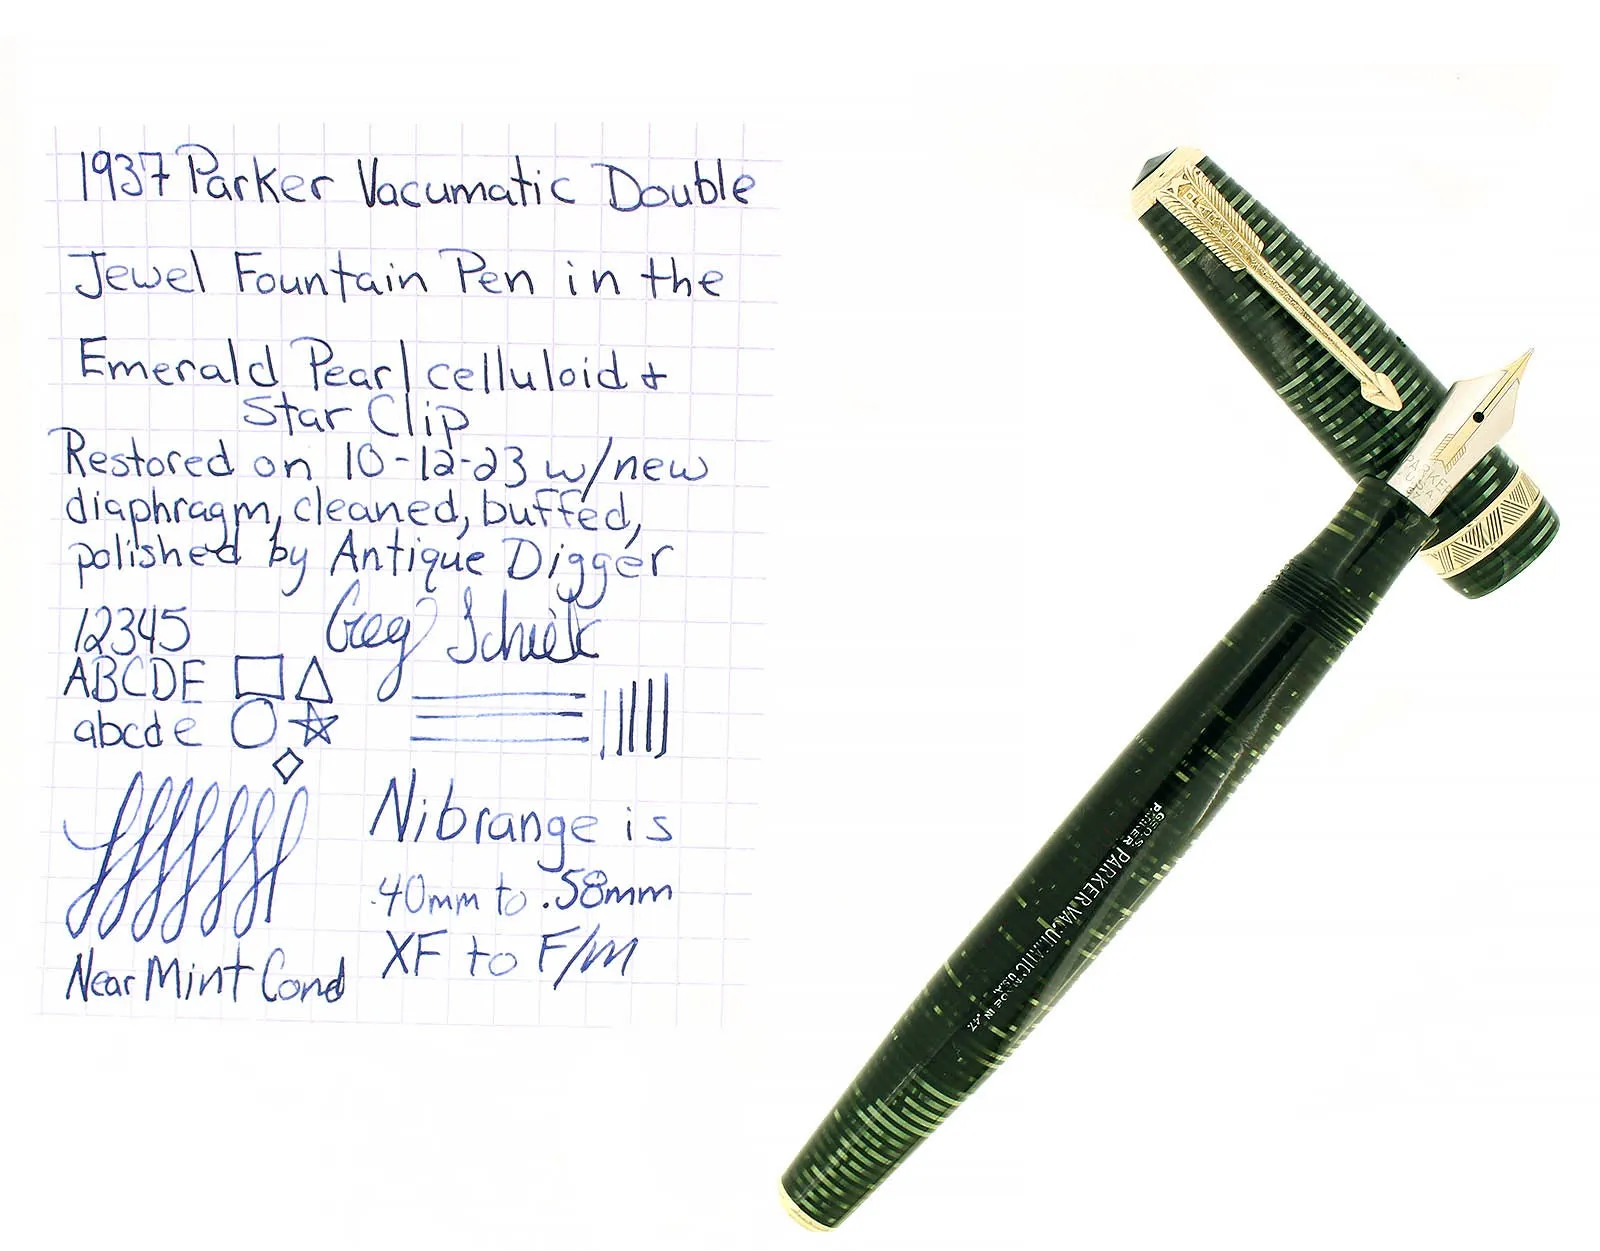 1937 Parker Vacumatic Double
Jewel Fountain Pen in the
Emerald Pearl celluloid +
Star Clip
Restored on 10-12-23 w/new
diaphragm, cleaned, buffed,
polished by Antique Digger
12345
Greg
ABCDE
abcde
Nibrange is
.40mm to .58mm
XF to F/m
Near Mint Cond
PARKER
GEO.S.
PARKER PARKER VACUMATIC MADE IN
U.S.A. .47.